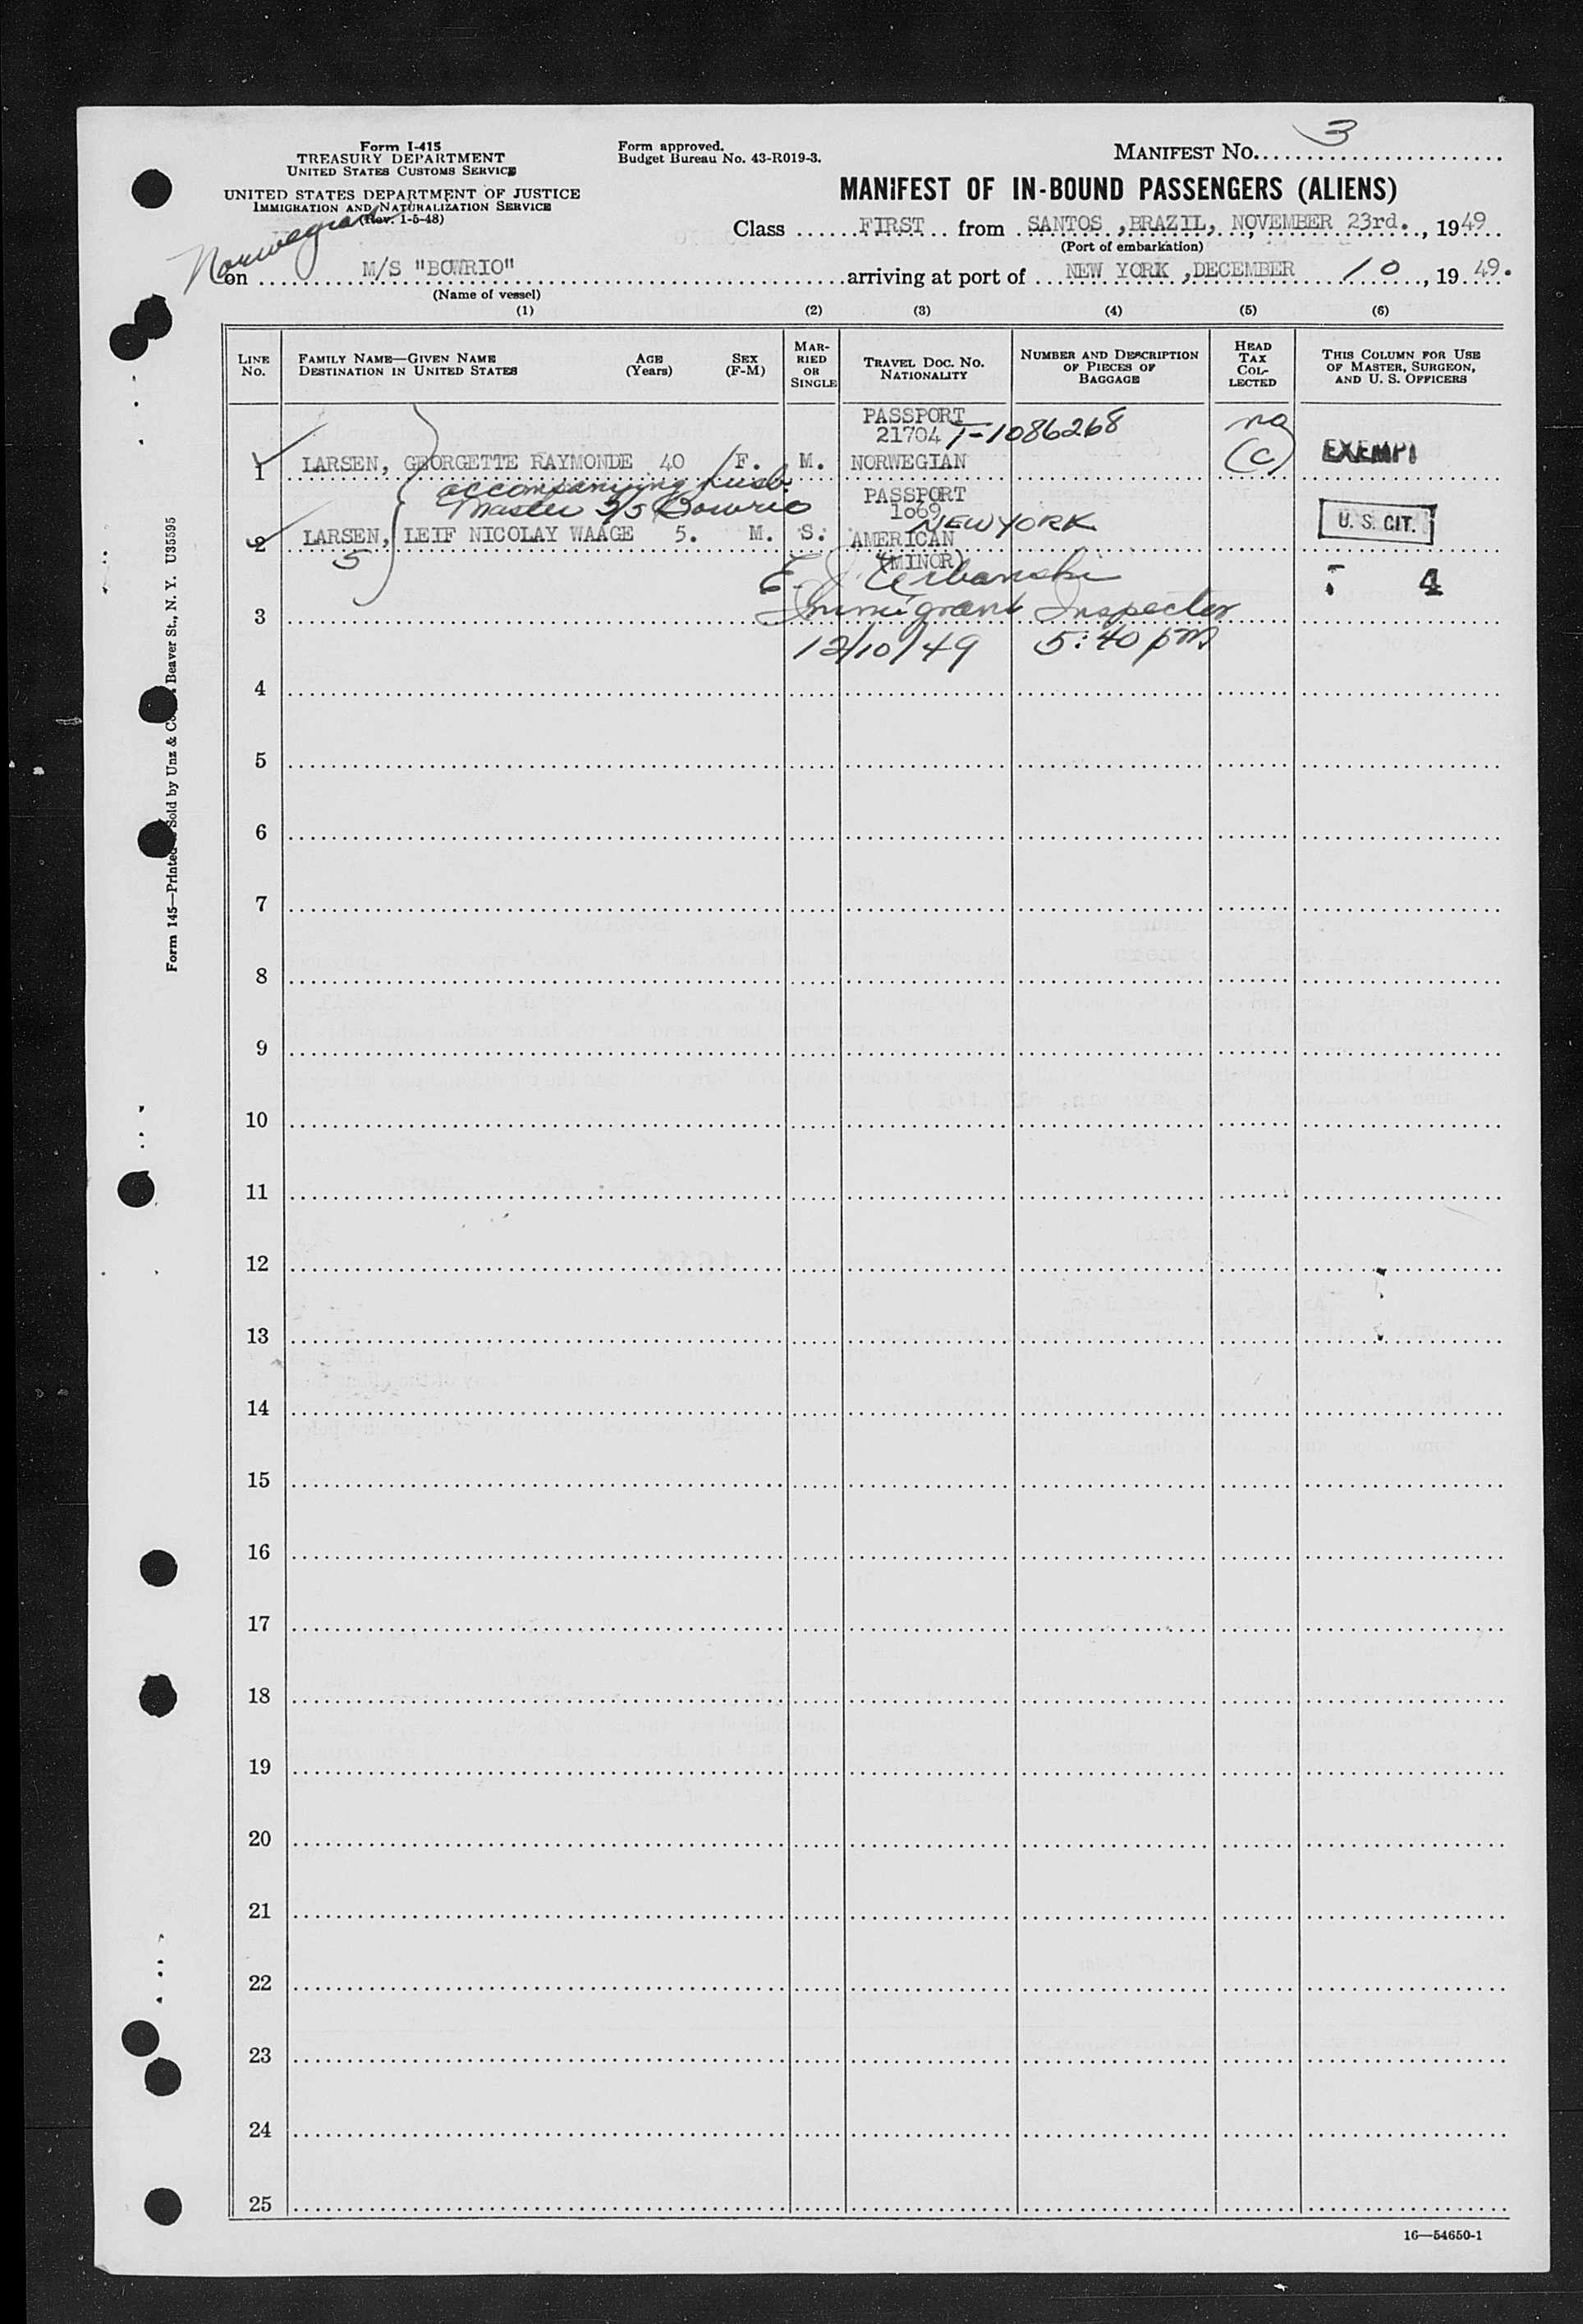 Form I-415
TREASURY DEPARTMENT
UNITED STATES CUSTOMS SERVICE
UNITED STATES DEPARTMENT OF JUSTICE
IMMIGRATION AND NATURALIZATION SERVICE
(Rev. 1-5-48)
Form approved.
Budget Bureau No. 43-R019-3.
MANIFEST No. 3
MANIFEST OF IN-BOUND PASSENGERS (ALIENS)
Class FIRST from SANTOS, BRAZIL, NOVEMBER 23rd., 1949
(Port of embarkation)
Norwegian
on M/S "BOWRIO" arriving at port of NEW YORK, DECEMBER 10, 1949.
(Name of vessel)
(1) (2) (3) (4) (5) (6)
LINE No.
FAMILY NAME—GIVEN NAME
DESTINATION IN UNITED STATES
AGE (Years)
SEX (F-M)
MARRIED OR SINGLE
TRAVEL DOC. No.
NATIONALITY
NUMBER AND DESCRIPTION OF PIECES OF BAGGAGE
HEAD TAX COLLECTED
THIS COLUMN FOR USE OF MASTER, SURGEON, AND U. S. OFFICERS
PASSPORT
21704 T-1086268 no
1 LARSEN, GEORGETTE RAYMONDE 40 F. M. NORWEGIAN (C) EXEMPT
accompanying husb.
Master M/S Bowrio
PASSPORT
1o69
NEW YORK
2 LARSEN, LEIF NICOLAY WAAGE 5. M. S. AMERICAN U. S. CIT.
5
(MINOR)
E. J. Urbanski
4
3 Immigrant Inspector
12/10/49 5:40 pm
4
5
6
7
8
9
10
11
12
13
14
15
16
17
18
19
20
21
22
23
24
25
16—54650-1
Beaver St., N. Y. U35595
Form 145—Printed & Sold by Unz & Co.